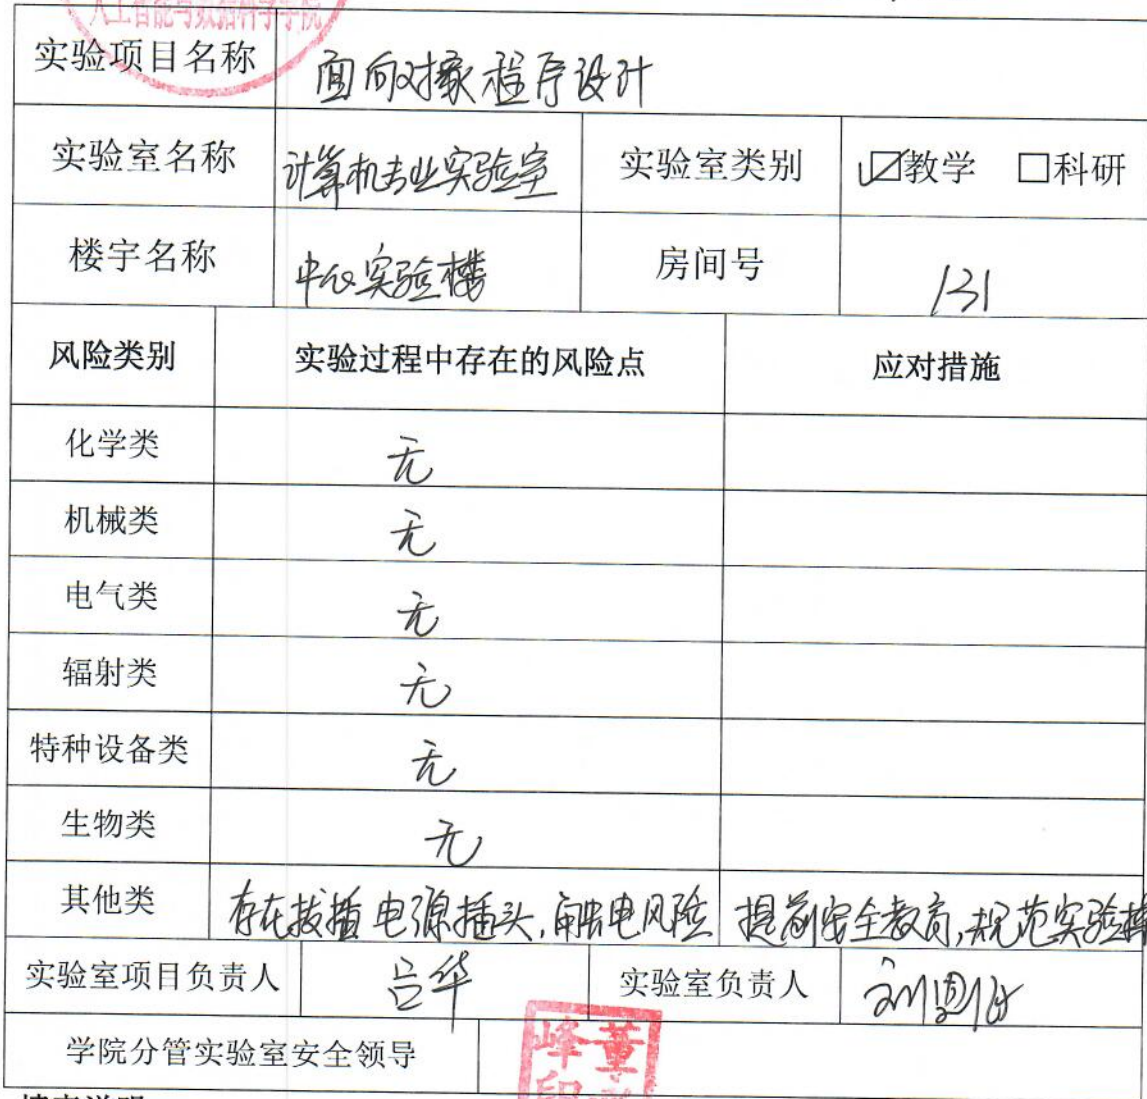 人工智能与数据科学学院
实验项目名称 面向对象程序设计
实验室名称 计算机专业实验室 实验室类别 ☑教学 □科研
楼宇名称 中心实验楼 房间号 131
风险类别 实验过程中存在的风险点 应对措施
化学类 无
机械类 无
电气类 无
辐射类 无
特种设备类 无
生物类 无
其他类 存在拔插电源插头,触电风险 提前安全教育,规范实验
实验室项目负责人 吕华 实验室负责人
学院分管实验室安全领导 董
峰